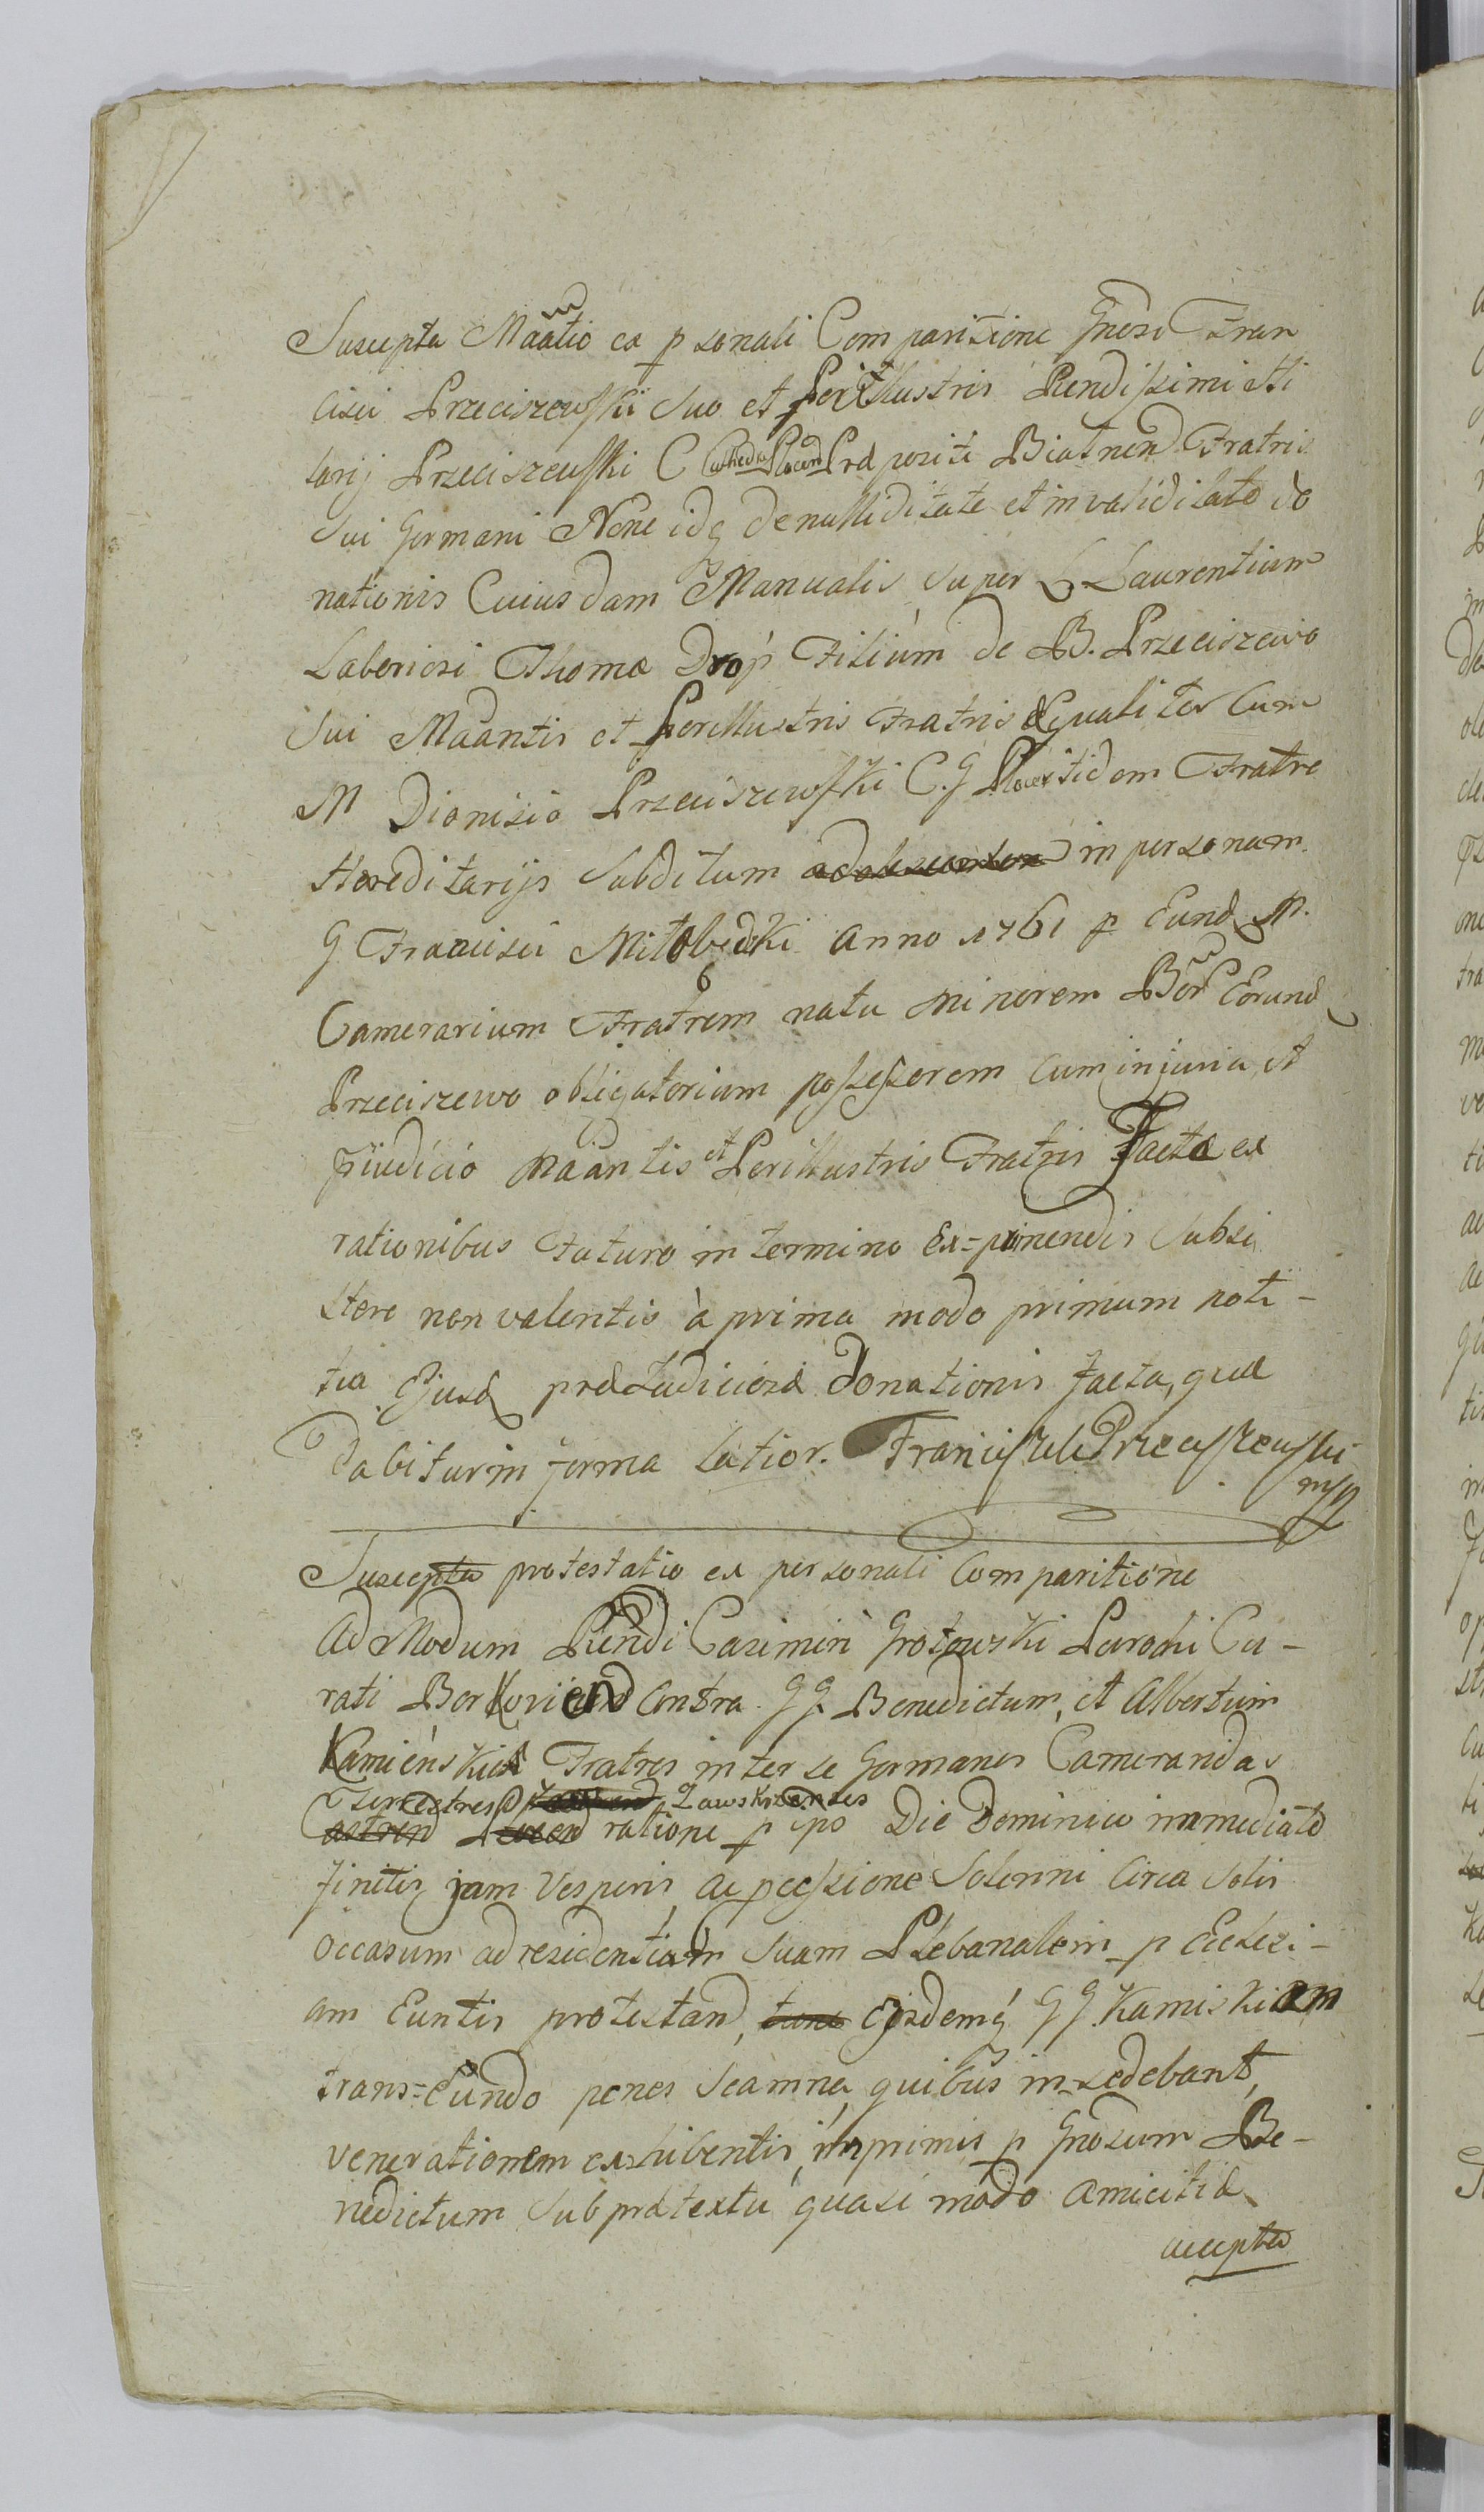 Suscepta Maãtio ex p sonali Comparitione Gnosi Fran
cisci Przeciszewski suo et Perillustris Rendissimi Hi
larij Przeciszewski C Cathedr Plocen Præ positi Biatnen Fratris
sui Germani None idq de nulliditate et invaliditate do
nationis Cuiusdam Manualis super L Laurentium
Laboriosi Thomæ Drop Filium de B. Przeciszewo
sui Maãntis et Perillustris Fratris æqualiter Cum
M Dionisio Przeciszewski C. G Plocen itidem Fratre
Hæreditarijs subditum in personam
G Francisci Miłobędzki Anno 1761 p Eund M.
Camerarium Fratrem natu minorem Bor Eorund
Przeciszewo obligatorium possessorem cum injuria et
pjudicio Maãntis et Perillustris Fratris Factæ ex
rationibus Futuro in termino Ex=ponendis subsi
stere non valentis à prima modo primum noti-
tia Ejusd præJudiciosæ donationis facta, quæ
Dabitur in forma latior. Franciszek Przeciszewski
mp
Suscepta protestatio ex personali Comparitione
Ad Modum Rendi Casimiri Grotowski Parochi Cu-
rati Borkovicen Contra G G. Benedictum, et Albertum
Kamieński Fratres inter se Germanos Camerandas
Terrestres Zawskrzenses
Castren Plocen ratione p ipo Die Dominico immediate
finitis jam Vesperis, ac pcessione Solenni Circa Solis
occasum ad residentiam suam Plebanalem p Ecclesi-
am Euntis protestan, tunc Ejsdemq G G. Kamiskiom
trans=Eundo penes scamna, quibus in-sedebant,
venerationem exhibentis, inprimis p Gnosum Be-
nedictum sub prætextu quasi modo amicitiæ
accepta